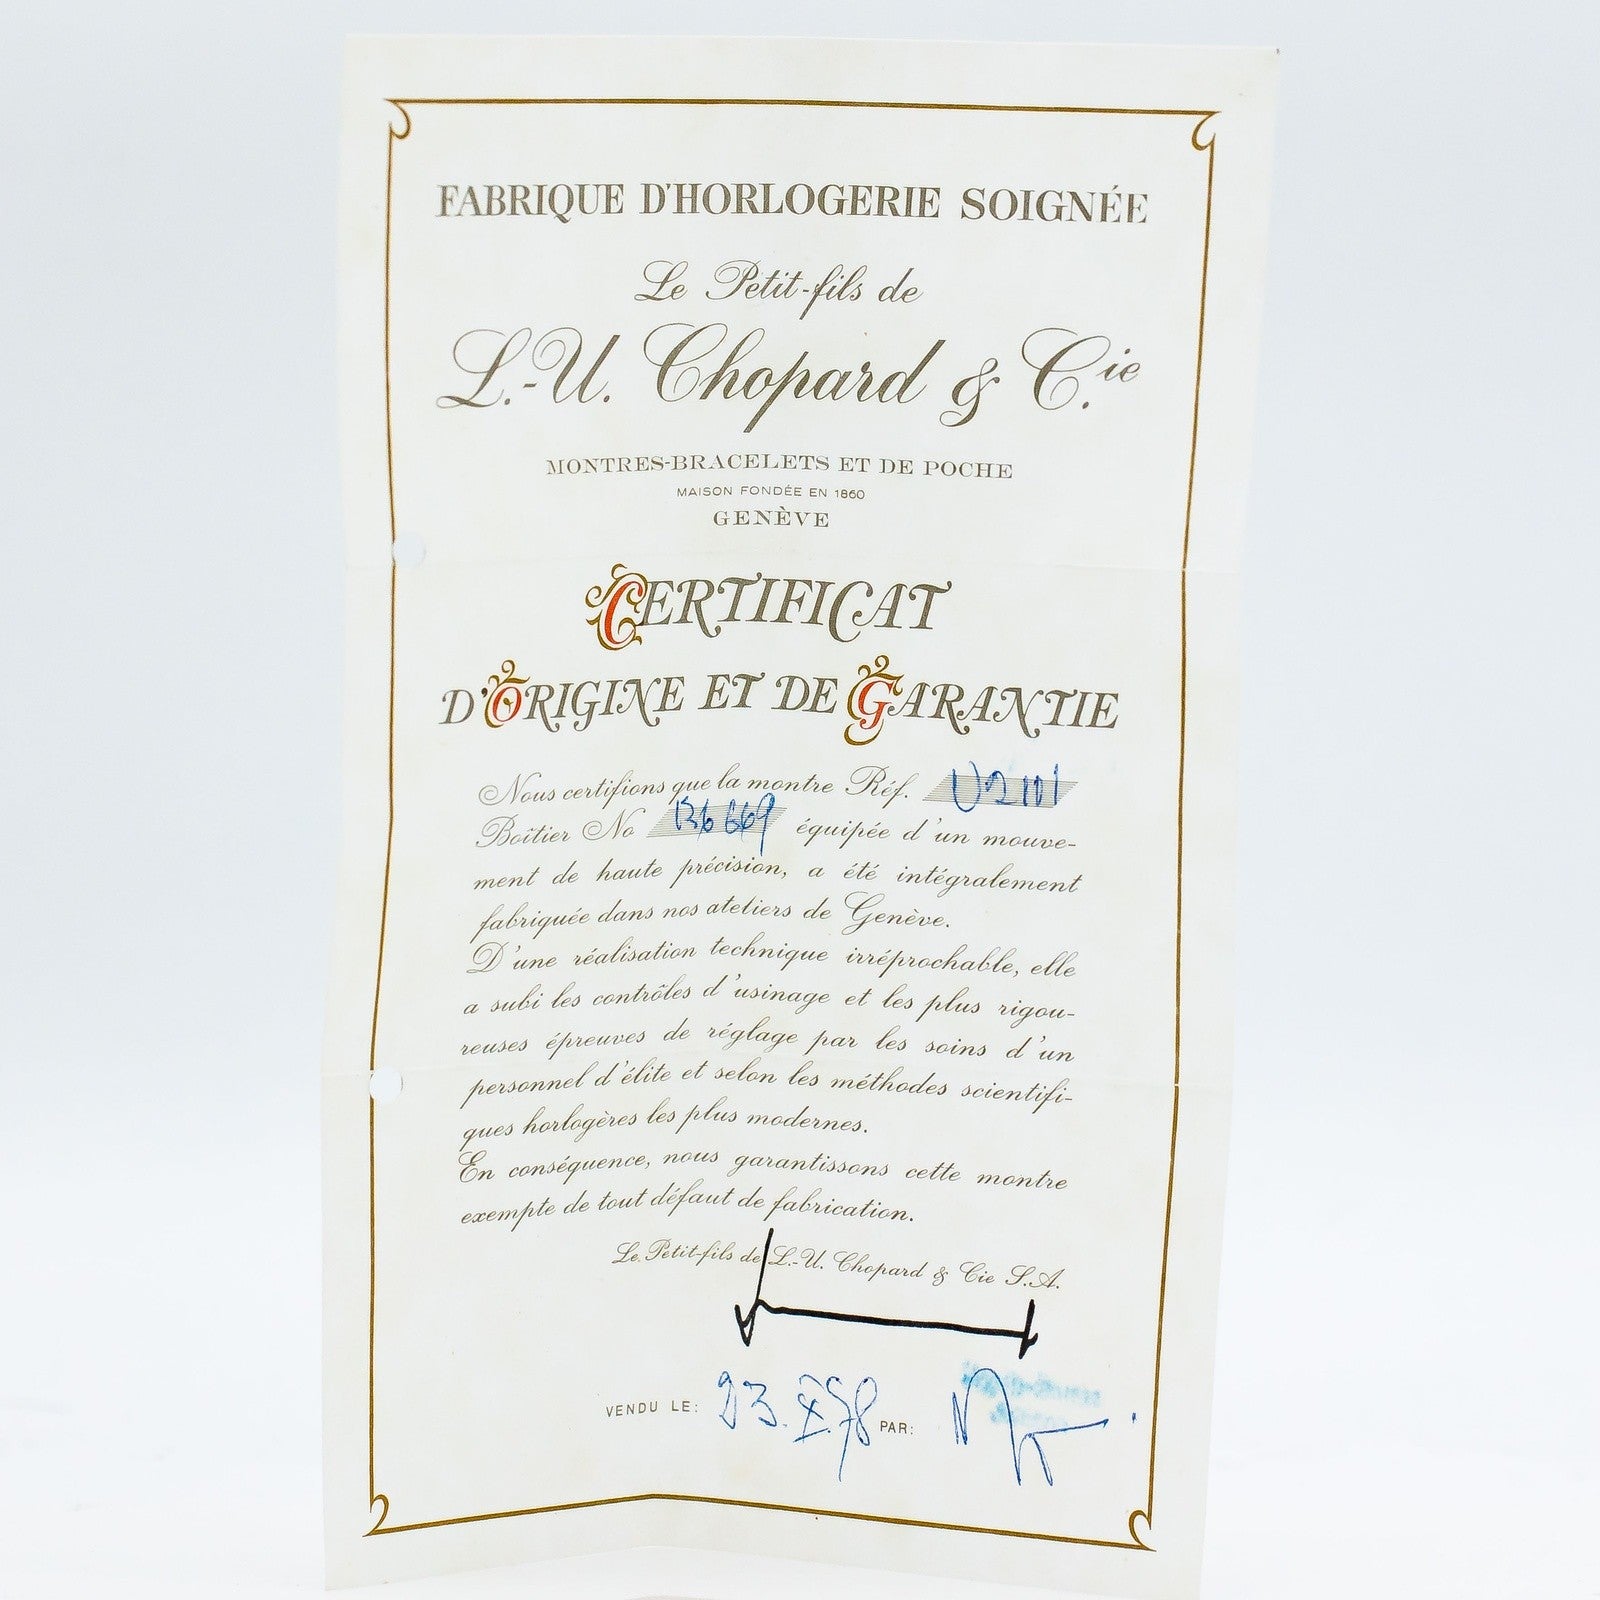 FABRIQUE D'HORLOGERIE SOIGNÉE
Le Petit-fils de
L.-U. Chopard & C.ie
MONTRES-BRACELETS ET DE POCHE
MAISON FONDÉE EN 1860
GENÈVE
CERTIFICAT
D'ORIGINE ET DE GARANTIE
Nous certifions que la montre Réf. U2101
Boîtier No équipée d'un mouve-
ment de haute précision, a été intégralement
fabriquée dans nos ateliers de Genève.
D'une réalisation technique irréprochable, elle
a subi les contrôles d'usinage et les plus rigou-
reuses épreuves de réglage par les soins d'un
personnel d'élite et selon les méthodes scientifi-
ques horlogères les plus modernes.
En conséquence, nous garantissons cette montre
exempte de tout défaut de fabrication.
Le Petit-fils de L.-U. Chopard & Cie S.A.
VENDU LE: 23.X.78 PAR: